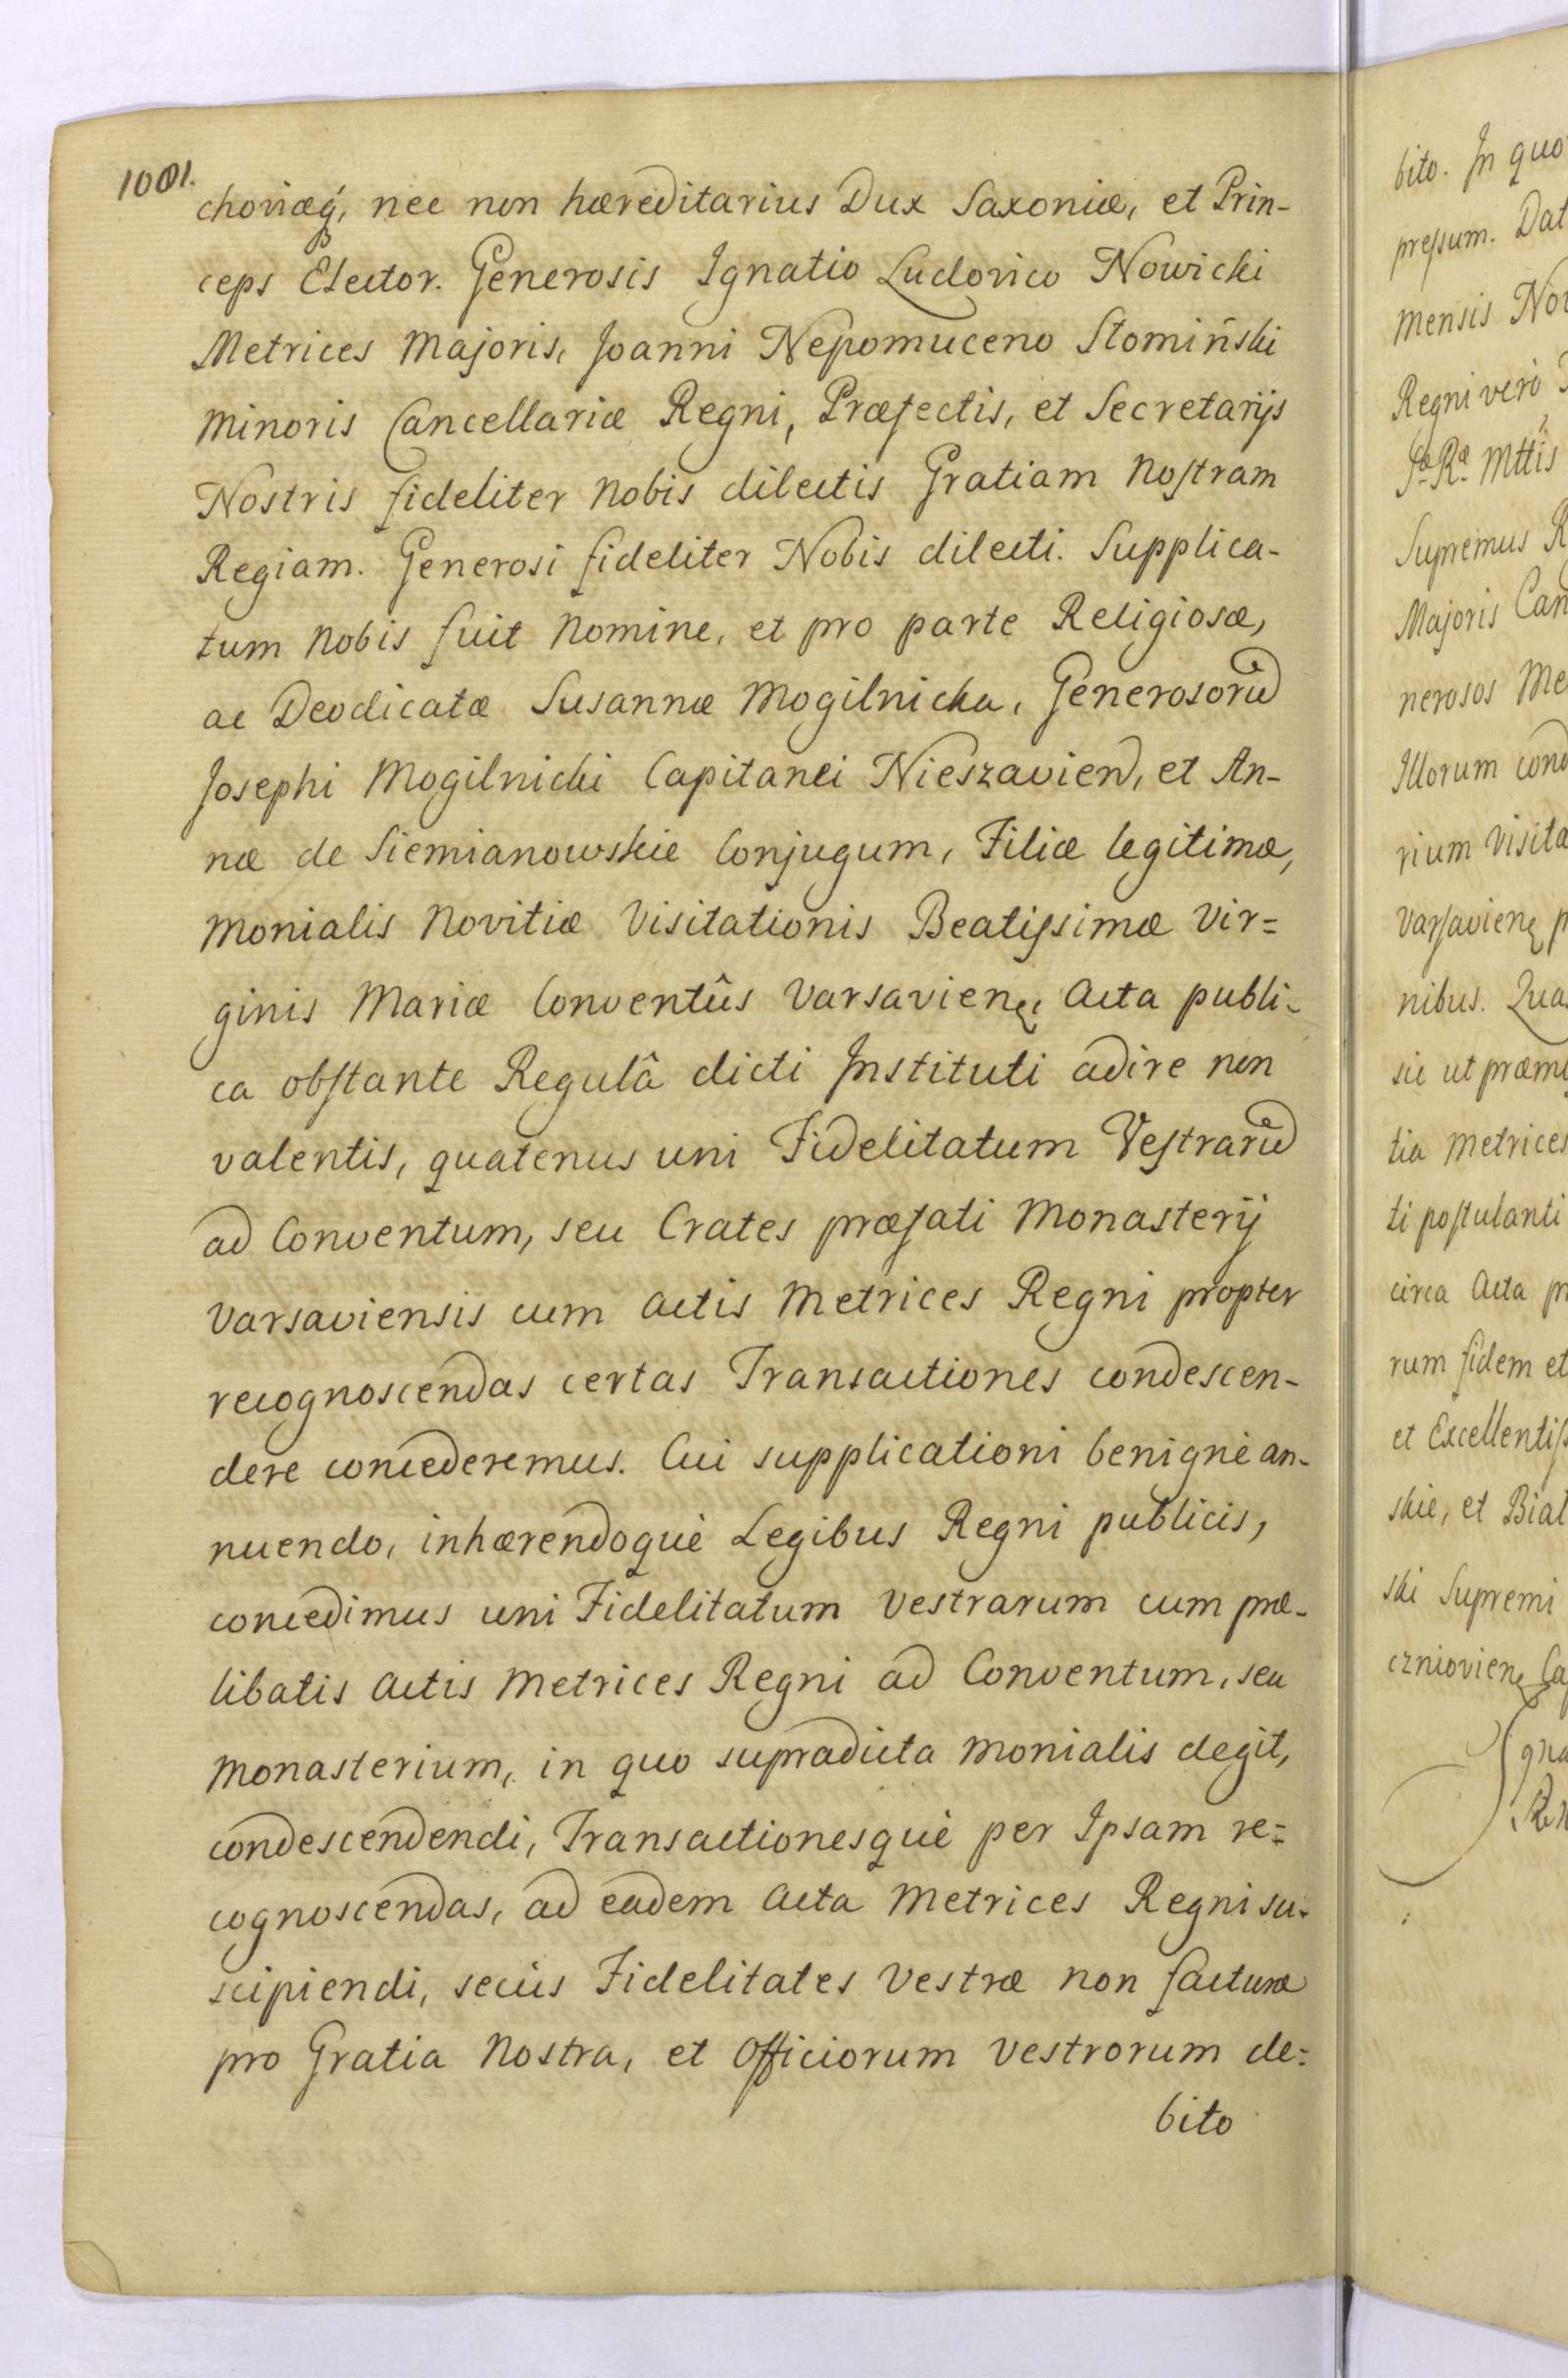 1001.
choviæq́, nec non hæreditarius Dux Saxoniæ, et Prin-
ceps Elector. Generosis Ignatio Ludovico Nowicki
Metrices Majoris, Joanni Nepomuceno Słomiński
Minoris Cancellariæ Regni, Præfectis, et Secretarijs
Nostris fideliter Nobis dilectis Gratiam Nostram
Regiam. Generosi fideliter Nobis dilecti. Supplica-
tum Nobis fuit Nomine, et pro parte Religiosæ,
ac Deodicatæ Susannæ Mogilnicka, Generosorũ
Josephi Mogilnicki Capitanei Nieszavien, et An-
næ de Siemianowskie Conjugum, Filiæ legitimæ,
Monialis Novitiæ Visitationis Beatissimæ Vir=
ginis Mariæ Conventûs Varsavien, Acta publi-
ca obstante Regulâ dicti Instituti adire non
valentis, quatenus uni Fidelitatum Vestrarũ
ad Conventum, seu Crates præfati Monasterij
Varsaviensis cum Actis Metrices Regni propter
recognoscendas certas Transactiones condescen-
dere concederemus. Cui supplicationi benignè an-
nuendo, inhærendoquè Legibus Regni publicis,
concedimus uni Fidelitatum Vestrarum cum præ-
libatis Actis Metrices Regni ad Conventum, seu
Monasterium, in quo supradicta Monialis degit,
condescendendi, Transactionesquè per Ipsam re=
cognoscendas, ad eadem Acta Metrices Regni su-
scipiendi, secùs Fidelitates Vestræ non facturæ
pro Gratia Nostra, et Officiorum Vestrorum de=
bito
bito. In quo
pressum. Dat
Mensis Nov
Regni verò
Sæ Ræ Mttis
Supremus R
Majoris Can
nerosos Me
Illorum cond
rium Visita
Varsavien p
nibus. Qua
sic ut præmi
tia Metrices
ti postulanti
circa Acta pr
rum fidem et
et Excellentiss
skie, et Biał
ski Supremi
czniovien Ca
gna